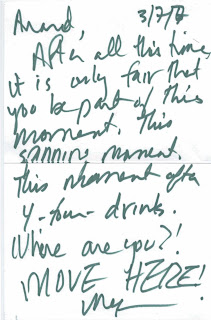 Anand,
3/7/
After all this time,
it is only fair that
you be part of this
moment. This
moment.
This moment after
4-four- drinks.
Where are you?!
MOVE HERE!